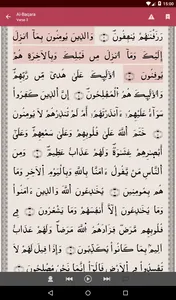 Al-Baqara
رَزَقْنٰهُمْ يُنْفِقُونَ وَالَّذِينَ يُؤْمِنُونَ بِمَآ اُنْزِلَ
اِلَيْكَ وَمَآ اُنْزِلَ مِنْ قَبْلِكَ وَبِالْاٰخِرَةِ هُمْ
يُوقِنُونَ اُولٰٓئِكَ عَلٰى هُدًى مِنْ رَبِّهِمْ
وَاُولٰٓئِكَ هُمُ الْمُفْلِحُونَ اِنَّ الَّذِينَ كَفَرُوا
سَوَآءٌ عَلَيْهِمْ ءَاَنْذَرْتَهُمْ اَمْ لَمْ تُنْذِرْهُمْ لَا
يُؤْمِنُونَ خَتَمَ اللّٰهُ عَلٰى قُلُوبِهِمْ وَعَلٰى سَمْعِهِمْ وَعَلٰٓى
اَبْصَارِهِمْ غِشَاوَةٌ وَلَهُمْ عَذَابٌ عَظِيمٌ وَمِنَ
النَّاسِ مَنْ يَقُولُ اٰمَنَّا بِاللّٰهِ وَبِالْيَوْمِ الْاٰخِرِ وَمَا
هُمْ بِمُؤْمِنِينَ يُخَادِعُونَ اللّٰهَ وَالَّذِينَ
اٰمَنُوا وَمَا يَخْدَعُونَ اِلَّآ اَنْفُسَهُمْ وَمَا يَشْعُرُونَ
فِي قُلُوبِهِمْ مَرَضٌ فَزَادَهُمُ اللّٰهُ مَرَضًا وَلَهُمْ عَذَابٌ
اَلِيمٌ بِمَا كَانُوا يَكْذِبُونَ وَاِذَا قِيلَ
لَهُمْ لَا تُفْسِدُوا فِي الْاَرْضِ قَالُوٓا اِنَّمَا